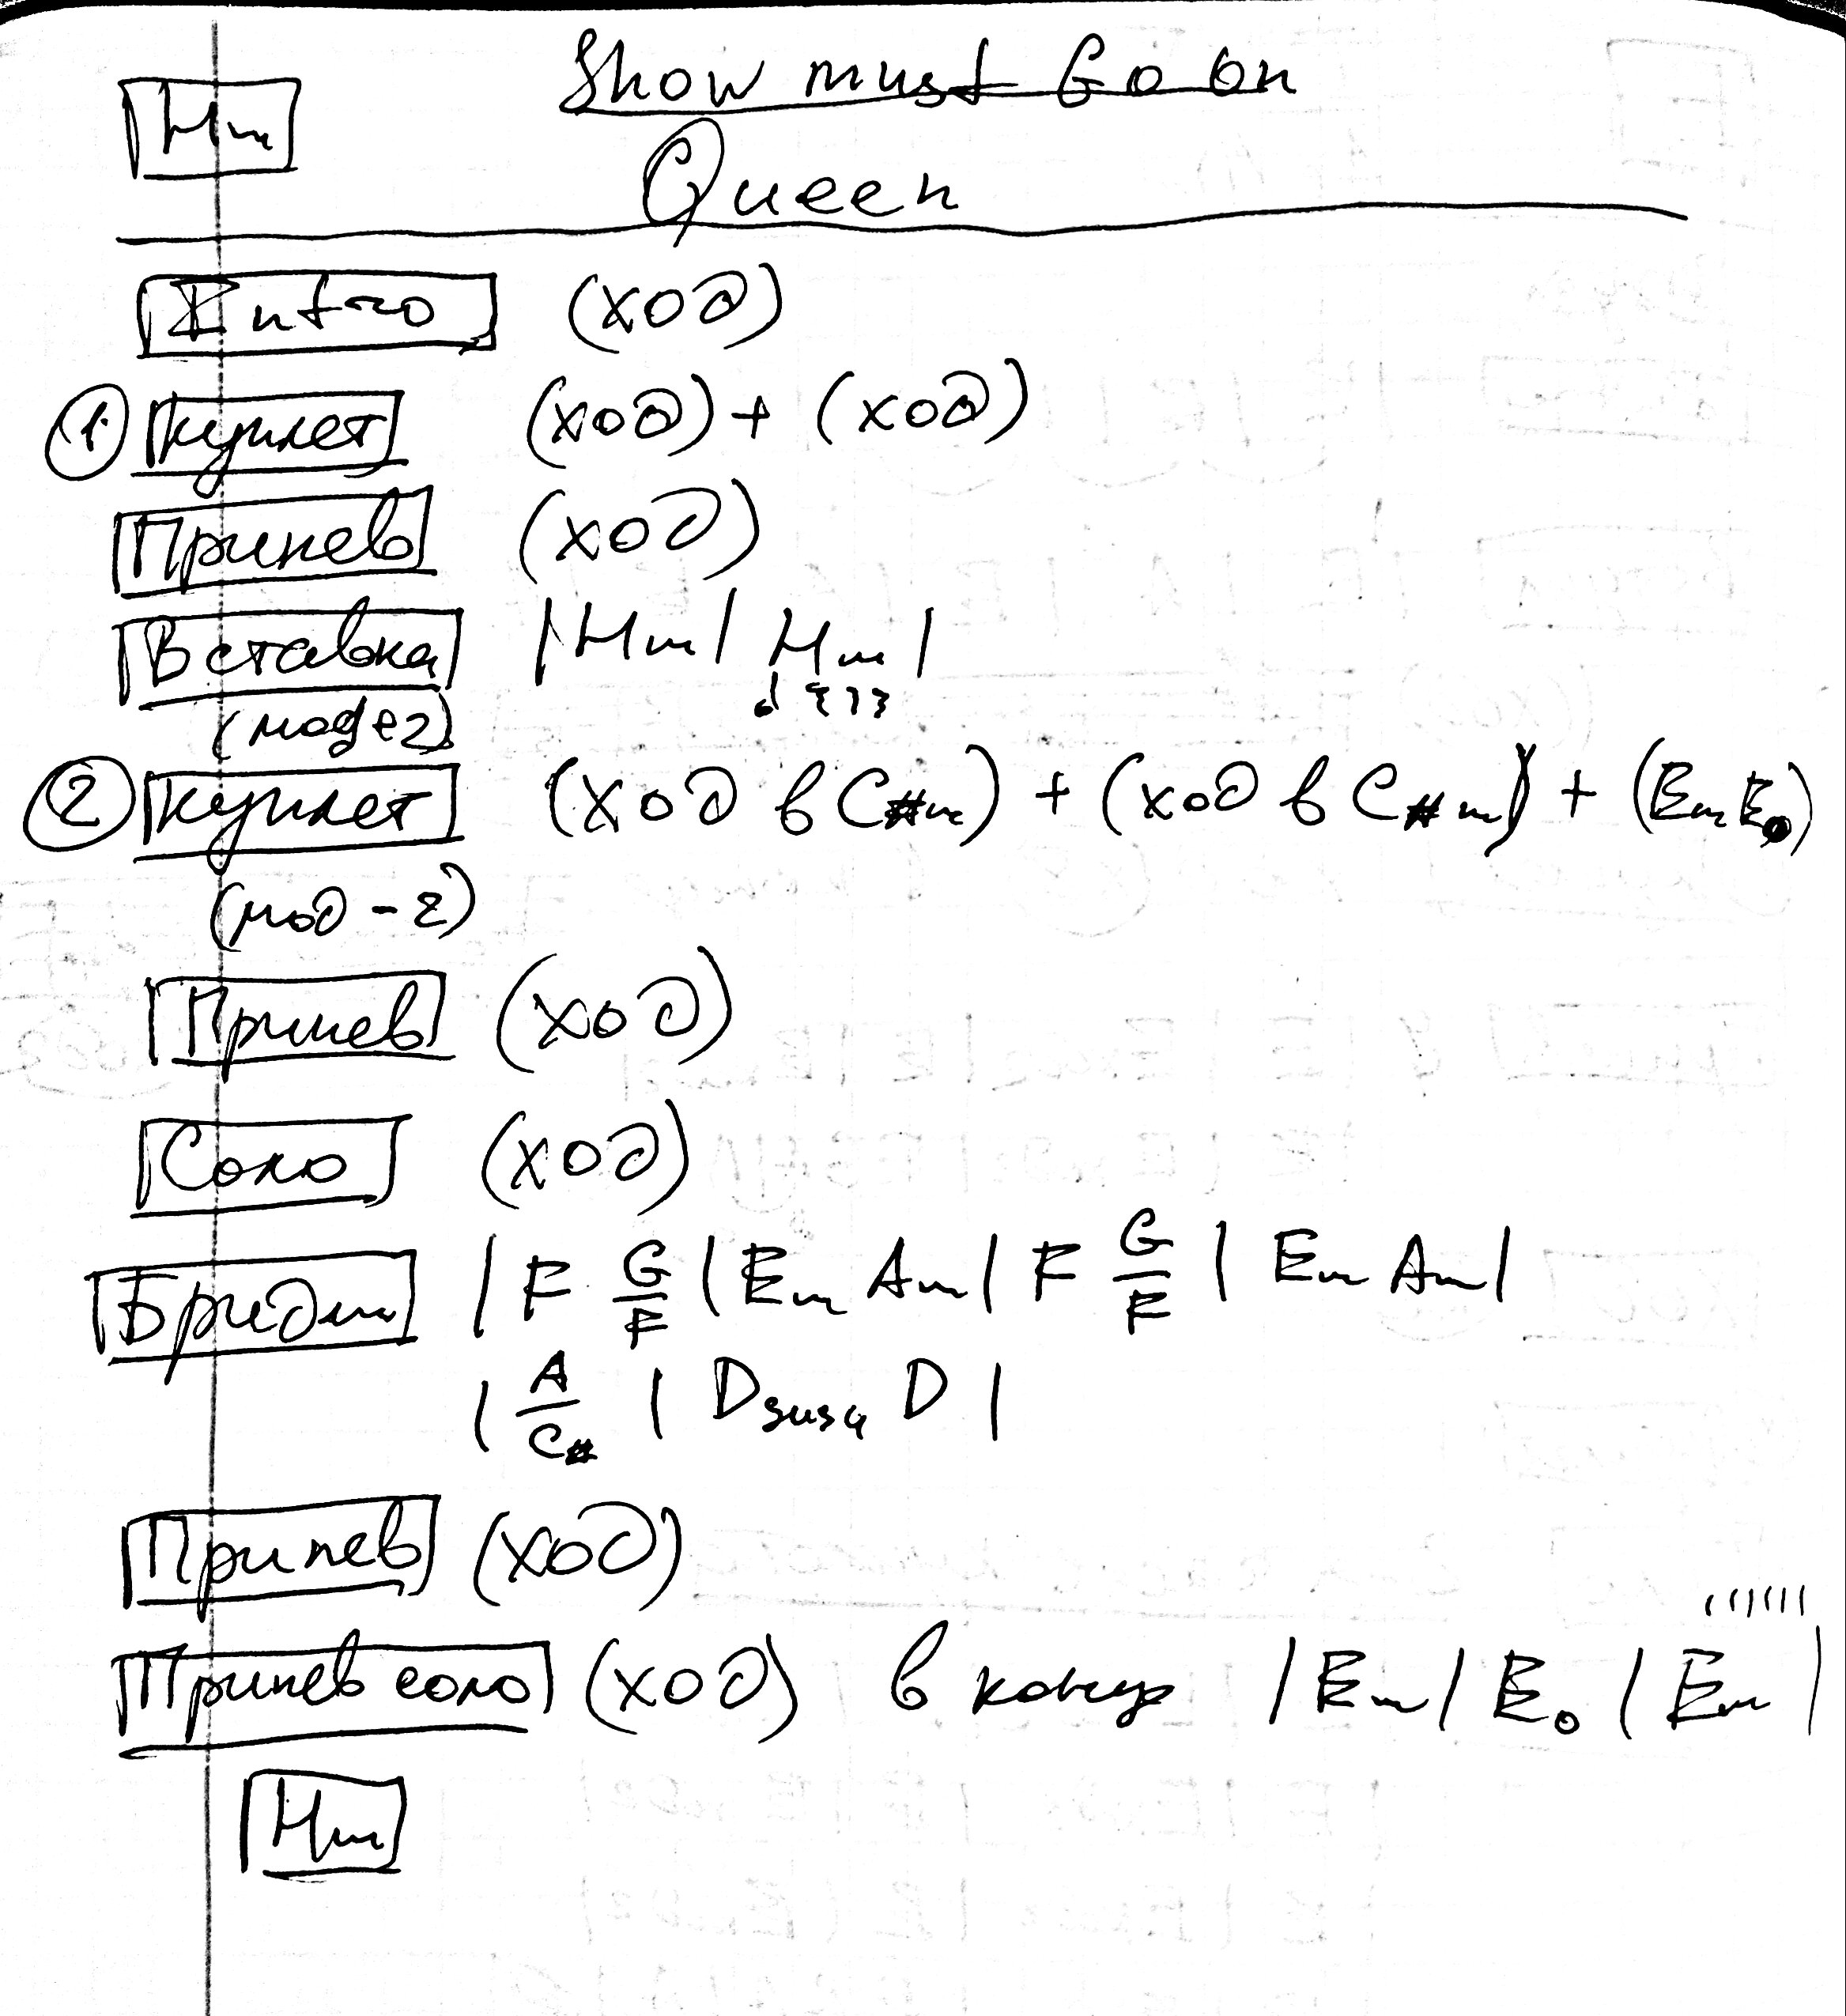 Show must Go on
Hm
Queen
Intro (ход)
1 Куплет (ход) + (ход)
Припев (ход)
Вставка | Hm | Hm |
2 Куплет (ход в C#m) + (ход в C#m) + (Em E0)
(мод - 2)
Припев (ход)
Соло (ход)
Бридж | F G/F | Em Am | F G/F | Em Am |
| A/C# | Dsus4 D |
Припев (ход)
Припев соло (ход) в конце | Em | E0 | Em |
Hm